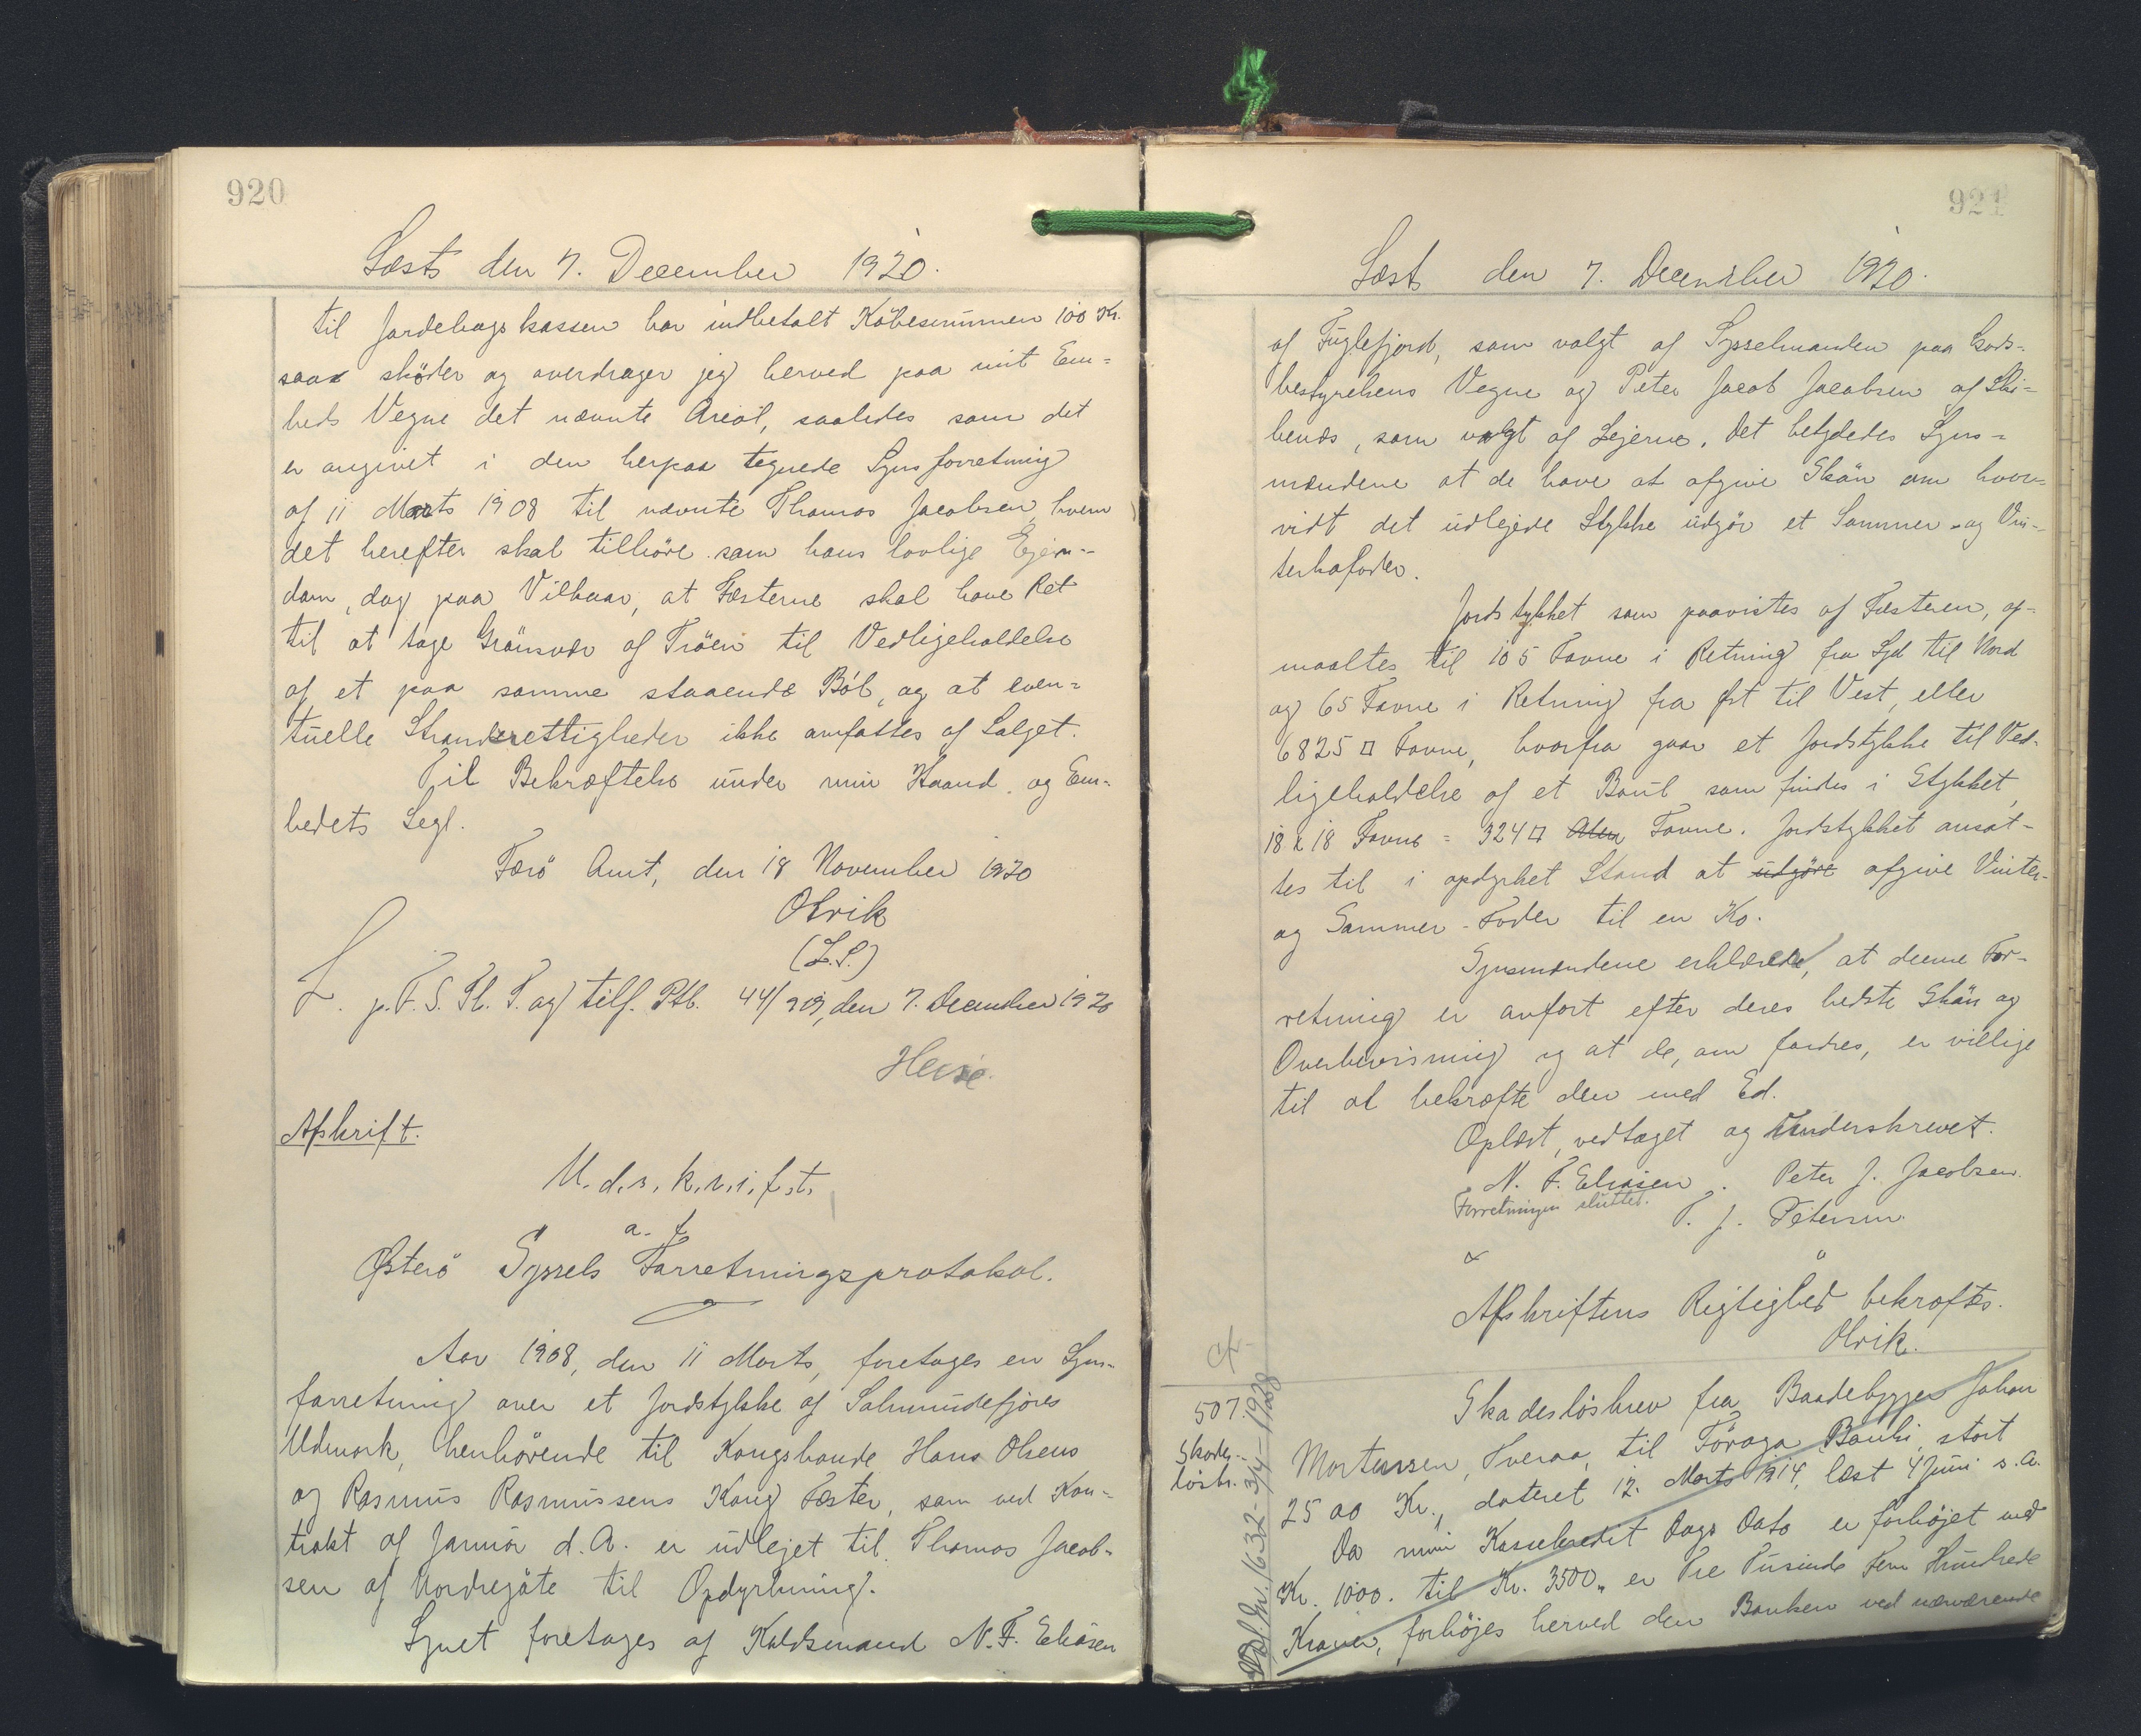 920
Læst den 7. December 1920.
til Jordebogskassen har indbetalt Købesummen 100 Kr.
saa skøder og overdrager jeg herved paa mit Em=
beds Vegne det nævnte Areal, saaledes som det
er angivet i den herpaa tegnede Synsforretning
af 11 Marts 1908 til nævnte Thomas Jacobsen, hvem
det herefter skal tilhöre som hans lovlige Ejen-
dom, dog paa Vilkaar, at Fæsterne skal have Ret
til at tage Grönsvær af Tröen til Vedligeholdelse
af et paa samme staaende Ból, og at even=
tuelle Strandrettigheder ikke omfattes af Salget.
Til Bekræftelse under min Haand og Em-
bedets Segl.
Færö Amt, den 18 November 1920
Olrik
(L.S.)
L. p. F. S. Pl. T. og tilf. Ptb. 44/909, den 7. December 1920
Heise.
Afskrift.
U.d.s.k.r.i.f.t.
a. f.
Østerö Syssels Forretningsprotokol.
Aar 1908, den 11 Marts, foretoges en Syns-
forretning over et Jordstykke af Salmundefjores
Udmark, henhörende til Kongsbonde Hans Olsens
og Rasmus Rasmussens Kong Fæster, som ved Kon=
trakt af Januar d.A. er udlejet til Thomas Jacob=
sen af Nordregöte til Opdyrkning.
Synet foretages af Kaldsmand N.F. Eliasen
921
Læst den 7. December 1920.
af Fuglefjord, som valgt af Sysselmanden paa Gods-
bestyrelsens Vegne og Peter Jacob Jacobsen af Ski=
benæs, som valgt af Lejerne. Det betydedes Syns=
mændene at de have at afgive Skön om hvor-
vidt det udlejede Stykke udgör et Sommer- og Vin-
terkofoder.
Jordstykket som paavistes af Fæsteren, op-
maaltes til 105 Favne i Retning fra Syd til Nord
og 65 Favne i Retning fra Øst til Vest, eller
6825 □ Favne, hvorfra gaar et Jordstykke til Ved-
ligeholdelse af et Baul som findes i Stykket,
18 x 18 Favne = 324 □ Alen Favne. Jordstykket ansat-
tes til i opdyrket Stand at udgöre afgive Vinter-
og Sommer-Foder til en Ko.
Synsmændene erklærede, at denne For-
retning er anfört efter deres bedste Skön og
Overbevisning og at de, om fordres, er villige
til at bekræfte den med Ed.
Oplæst, vedtaget og underskrevet.
N. F. Eliasen. Peter J. Jacobsen.
Forretningen sluttet.
P. J. Petersen.
Afskriftens Rigtighed bekræftes.
Olrik.
507
Skades-
lösbr.
Skadeslösbrev fra Baadebygger Johan
Mortensen, Tveraa, til Föroya Banki, stort
2500 Kr., dateret 12. Marts 1914, læst 4 Juni s.A.
Da min Kassekredit Dags Dato er forhöjet med
Kr. 1000. til Kr. 3500,, er Tre Tusinde Fem Hundrede
Kroner, forhöjes herved den Banken ved nærværende